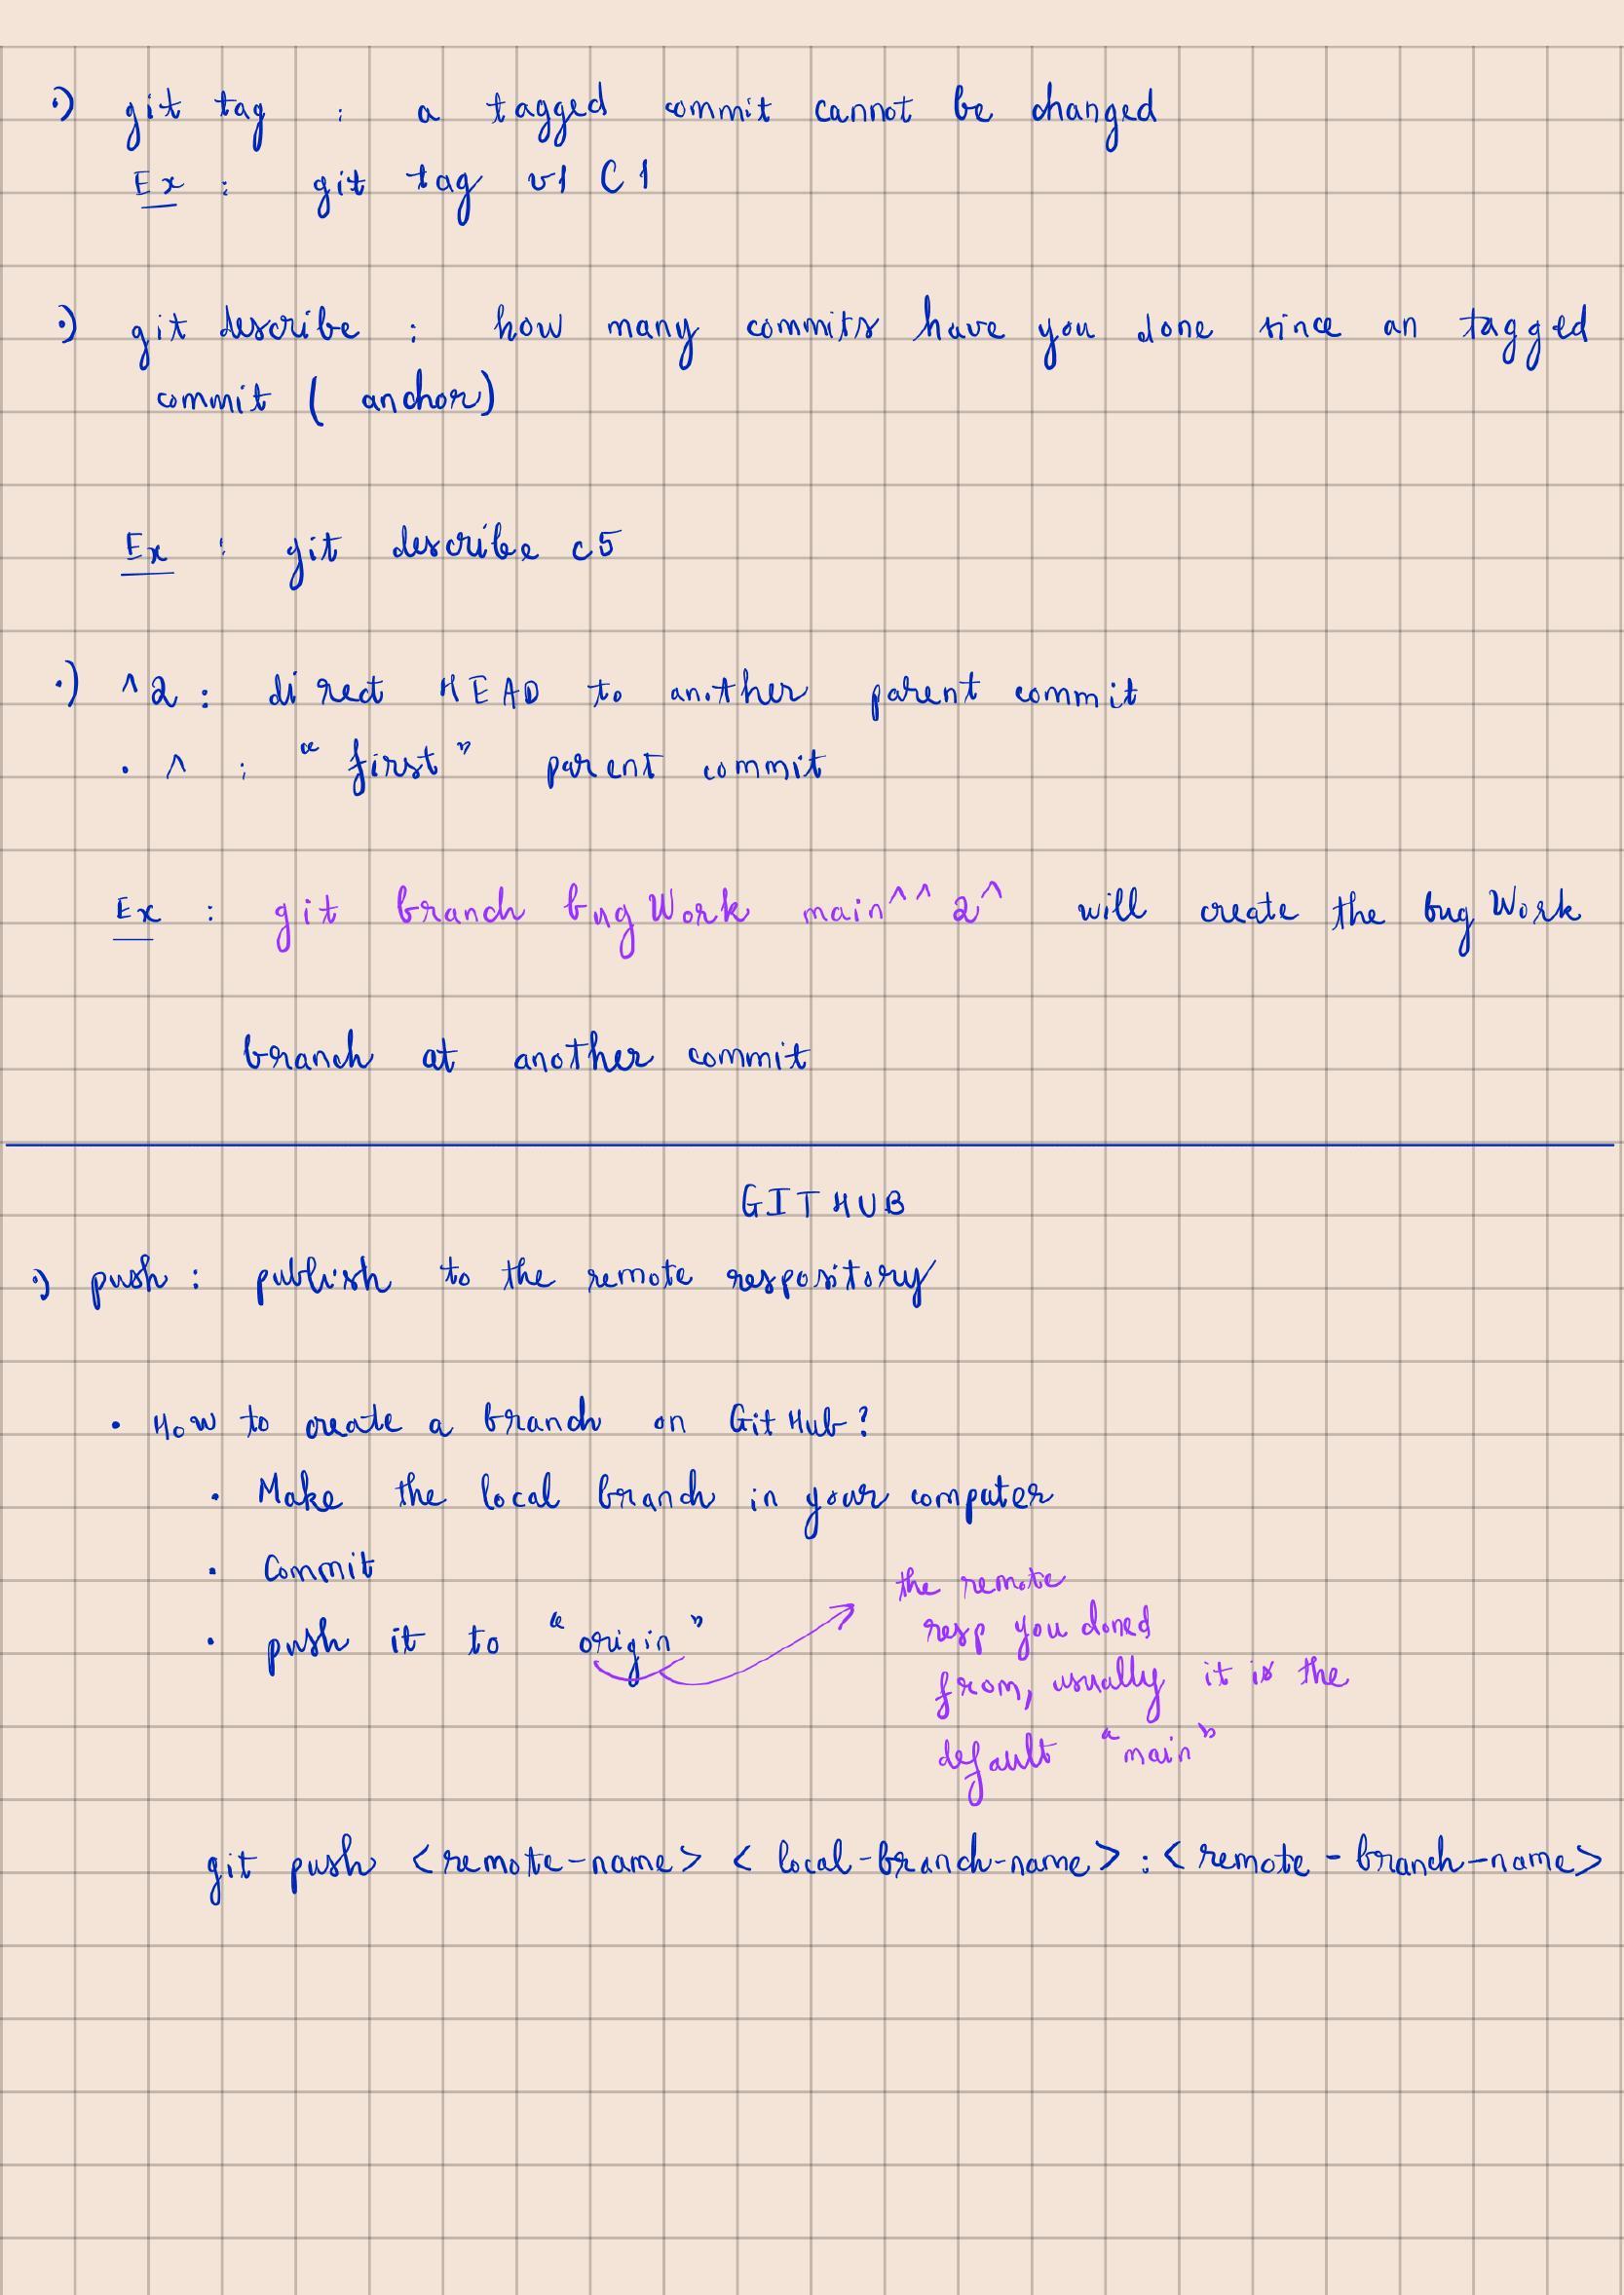 ·) git tag : a tagged commit cannot be changed
Ex : git tag v1 C1
·) git describe : how many commits have you done since an tagged
commit ( anchor)
Ex : git describe c5
·) ^2 : direct HEAD to another parent commit
· ^ : "first" parent commit
Ex : git branch bugWork main^^2^ will create the bugWork
branch at another commit
GITHUB
·) push : publish to the remote respository
· How to create a branch on GitHub?
· Make the local branch in your computer
· Commit
· push it to "origin"
the remote
resp you cloned
from, usually it is the
default "main"
git push <remote-name> < local-branch-name> : < remote - branch-name>